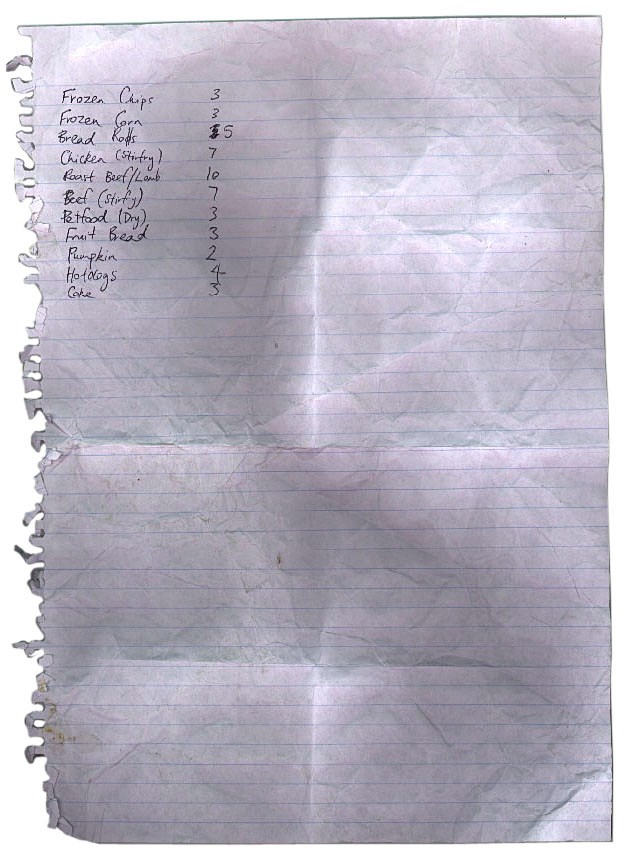 Frozen Chips 3
Frozen Corn 3
Bread Rolls 5
Chicken (Stirfry) 7
Roast Beef/Lamb 10
Beef (Stirfy) 7
Petfood (Dry) 3
Fruit Bread 3
Pumpkin 2
Hotdogs 4
Cake 3